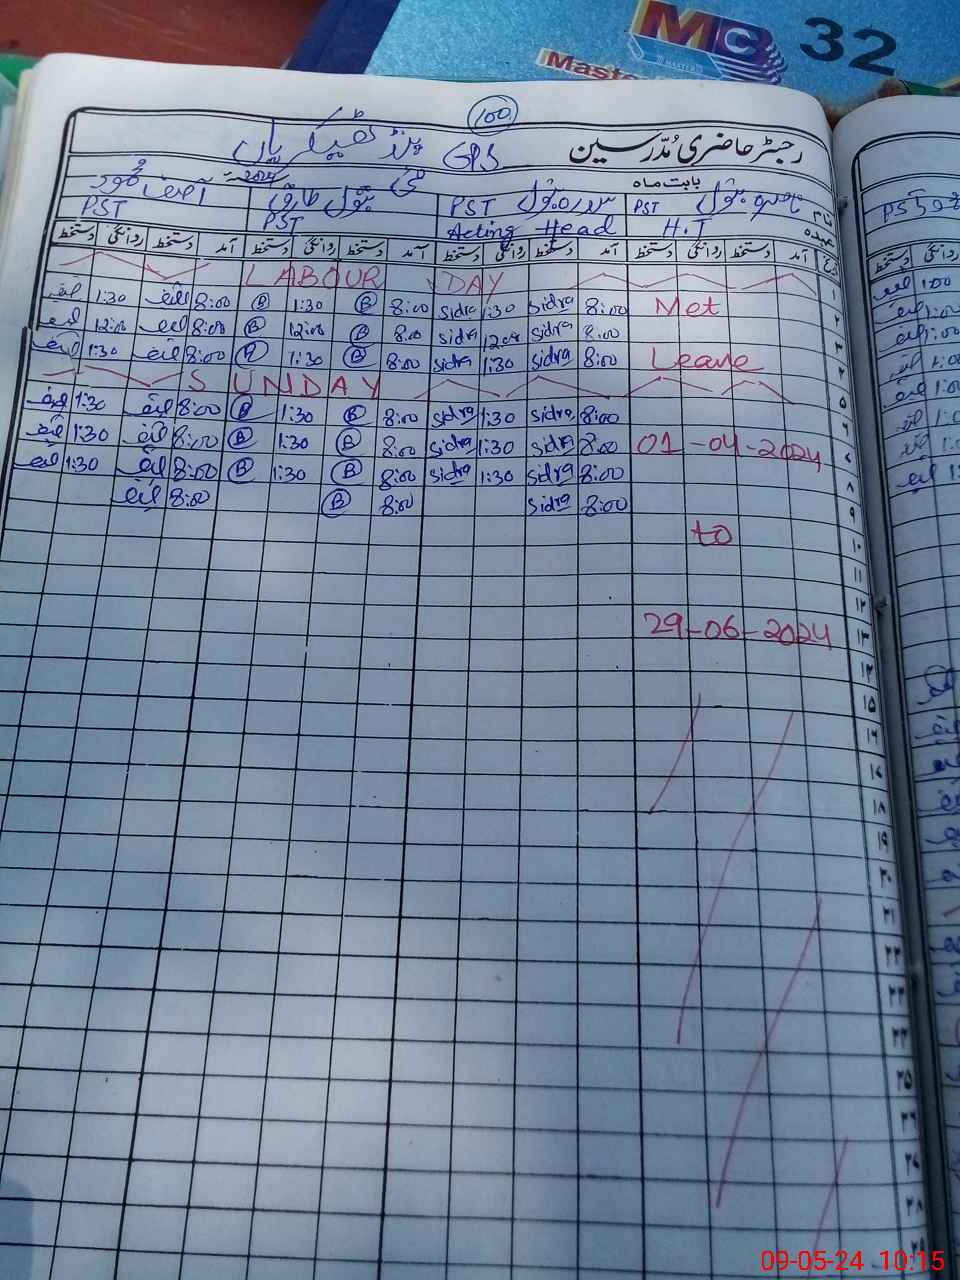 MCB 32
Master
100
رجسٹر حاضری مُدرسین GPS پنڈ ٹھیکریاں
بابت ماہ مئی 2024
نام بتول PST سدرہ بتول PST بتول طارق PST آصف محمود PST
عہدہ H.T Acting Head
تاریخ آمد دستخط روانگی دستخط آمد دستخط روانگی دستخط آمد دستخط روانگی دستخط آمد دستخط روانگی دستخط
۱ LABOUR DAY
۲ Met 8:00 sidra 1:30 sidra 8:00 B 1:30 B 8:00 آصف 1:30 آصف
۳ 8:00 sidra 12:00 sidra 8:00 B 12:00 B 8:00 آصف 12:00 آصف
۴ Leave 8:00 sidra 1:30 sidra 8:00 B 1:30 B 8:00 آصف 1:30 آصف
۵ SUNDAY
۶ 8:00 sidra 1:30 sidra 8:00 B 1:30 B 8:00 آصف 1:30 آصف
۷ 01-04-2024 8:00 sidra 1:30 sidra 8:00 B 1:30 B 8:00 آصف 1:30 آصف
۸ 8:00 sidra 1:30 sidra 8:00 B 1:30 B 8:00 آصف 1:30 آصف
۹ 8:00 sidra 8:00 B 8:00 آصف
۱۰ to
۱۱
۱۲
۱۳ 29-06-2024
۱۴
۱۵
۱۶
۱۷
۱۸
۱۹
۲۰
۲۱
۲۲
۲۳
۲۴
۲۵
۲۶
۲۷
۲۸
۲۹
09-05-24 10:15